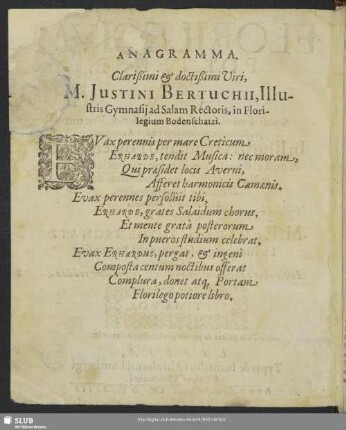 ANAGRAMMA.
Clarißimi & doctißimi Viri,
M. JUSTINI BERTUCHII, Illu-
stris Gymnasij ad Salam Rectoris, in Flori-
legium Bodenschatzi.
EVax perennis per mare Creticum
ERHARDE, tendit Musica: nec moram,
Qui præsidet locis Averni,
Afferet harmonicis Camænis.
Evax perennes persolvit tibi,
ERHARDE, grates Salaidum chorus,
Et mente gratâ posterorum
In pueros studium celebrat.
Evax ERHARDUS, pergat, & ingenî
Composta centum noctibus offerat
Complura, donet atq, Portam
Florilego potiore libro.
SLUB